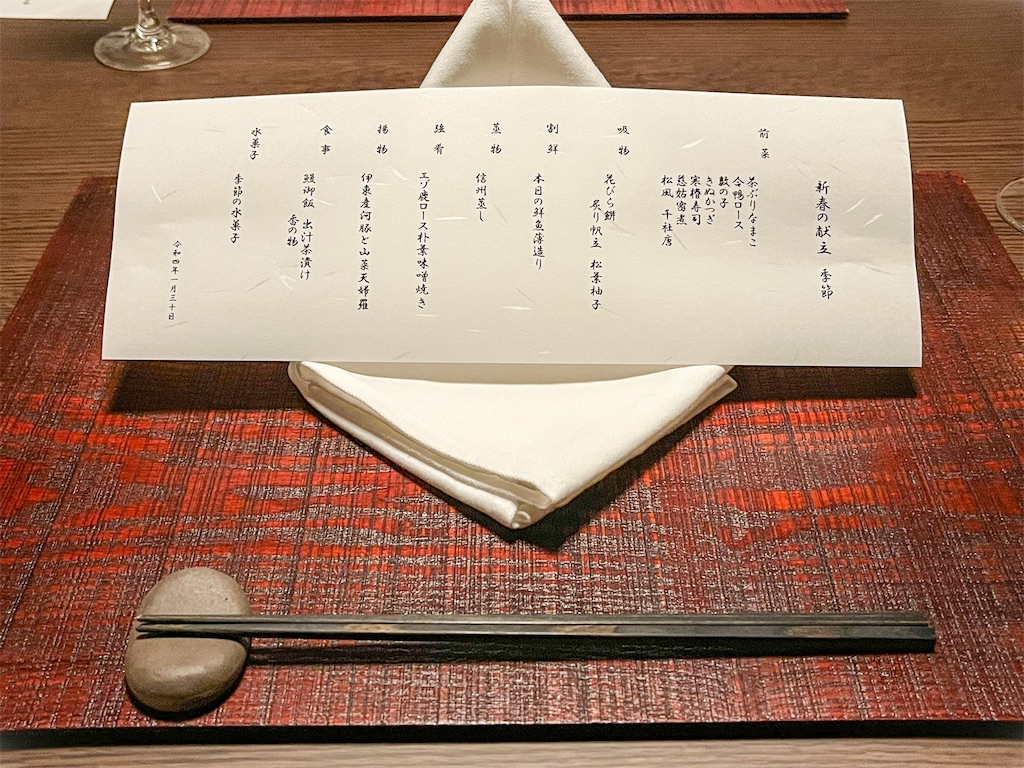 新春の献立 季節
前菜
茶ぶりなまこ
合鴨ロース
数の子
きぬかつぎ
寒椿寿司
慈姑蜜煮
松風 千社唐
吸物
花びら餅
炙り帆立 松葉柚子
割鮮
本日の鮮魚薄造り
蒸物
信州蒸し
強肴
エゾ鹿ロース朴葉味噌焼き
揚物
伊東産河豚と山菜天婦羅
食事
鰻御飯 出汁茶漬け
香の物
水菓子
季節の水菓子
令和四年一月三十日